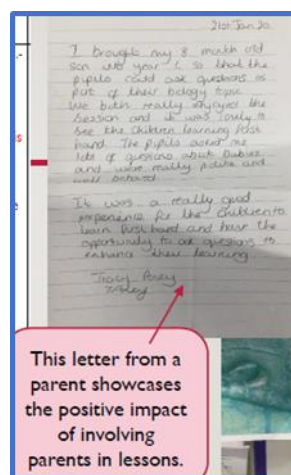 21st Jan 20
I brought my 8 month old
son into year 1, so that the
pupils could ask questions as
part of their biology topic.
We both really enjoyed the
session and it was lovely to
see the children learning first
hand. The pupils asked me
lots of questions about babies
and were really polite and
well behaved.
It was a really good
experience for the children to
learn first hand and have the
opportunity to ask questions to
enhance their learning
Tracy
This letter from a
parent showcases
the positive impact
of involving
parents in lessons.